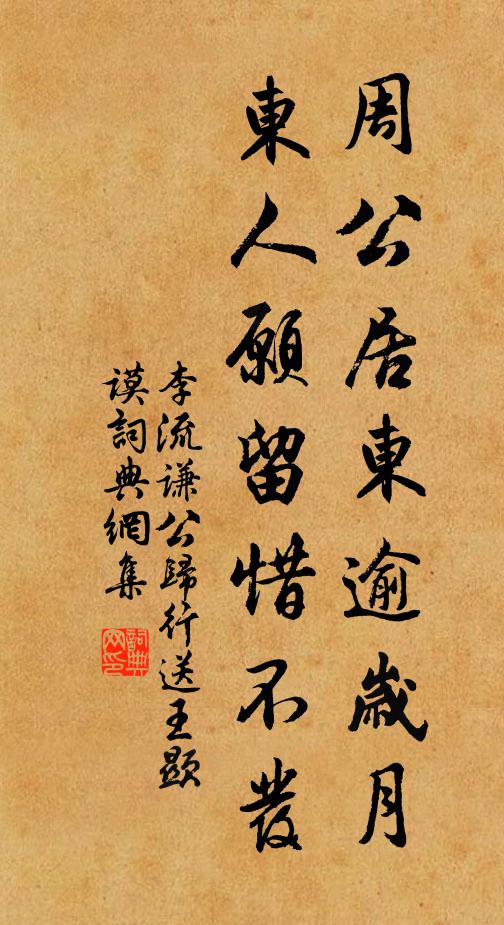 周公居東逾歲月
東人願留惜不發
李流谦公歸行送王顯
谟詞典網集
詞典网印